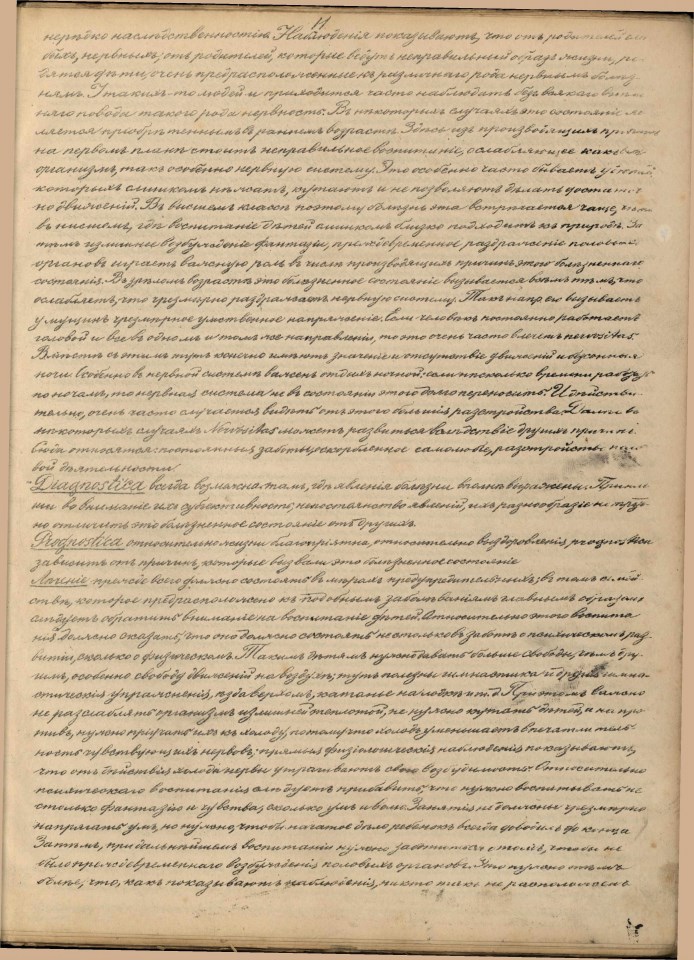 11
нерѣдко наслѣдственностію. Наблюденія показываютъ, что отъ родителей
нервныхъ, отъ родителей, которые ведутъ неправильный образъ жизни,
дѣти, очень предрасположенные къ различнаго рода нервнымъ
нямъ. У такихъ-то людей и приходится часто наблюдать безъ всякаго
няго повода такого рода нервность. Въ нѣкоторыхъ случаяхъ это состояніе
ляется пріобрѣтеннымъ въ раннемъ возрастѣ. Здѣсь изъ производящихъ
на первомъ планѣ стоитъ неправильное воспитаніе, ослабляющее какъ
организмъ, такъ особенно нервную систему. Это особенно часто бываетъ у
которыхъ слишкомъ нѣжатъ, кутаютъ и не позволяютъ дѣлать достаточ-
но движеній. Въ высшемъ классѣ поэтому болѣзнь эта встрѣчается чаще,
въ низшемъ, гдѣ воспитаніе дѣтей слишкомъ близко подходитъ къ природѣ. За
тѣмъ излишнее возбужденіе фантазіи, преждевременное раздраженіе половыхъ
органовъ играетъ важную роль въ числѣ производящихъ причинъ этого болѣзненнаго
состоянія. Въ зрѣломъ возрастѣ это болѣзненное состояніе вызывается всѣмъ тѣмъ, что
ослабляетъ, что чрезмѣрно раздражаетъ нервную систему. Такъ напр. ее вызываетъ
у мущинъ чрезмѣрное умственное напряженіе. Если человѣкъ постоянно работаетъ
головой и все въ одномъ и томъ же направленіи, то это очень часто влечетъ nervositas.
Вмѣстѣ съ этимъ тутъ конечно имѣютъ значеніе и отсутствіе движеній и безсонныя
ночи. Особенно въ нервной системѣ важенъ отдыхъ ночной: если нѣсколько времени
по ночамъ, то нервная система не въ состояніи этого долго переносить. И дѣйстви-
тельно, очень часто случается видѣть отъ этого большія разстройства. Далѣе въ
нѣкоторыхъ случаяхъ Nervositas можетъ развиться вслѣдствіе другихъ причинъ:
Сюда относятся: постоянныя заботы, оскорбленное самолюбіе, разстройства
вой дѣятельности.
Diagnostica всегда возможна тамъ, гдѣ явленія болѣзни вполнѣ выражены. Приня
вши во вниманіе ихъ субъективность, непостоянство явленій, ихъ разнообразіе не труд-
но отличить это болѣзненное состояніе отъ другихъ.
Prognostica относительно жизни благопріятна, относительно выздоровленія prognostica
зависитъ отъ причинъ, которые вызвали это болѣзненное состояніе
Лѣченіе прежде всего должно состоять въ мѣрахъ предупредительныхъ: въ томъ семей
ствѣ, которое предрасположено къ подобнымъ заболѣваніямъ главнымъ образомъ
слѣдуетъ обратить вниманіе на воспитаніе дѣтей. Относительно этого воспита
нія должно сказать, что оно должно состоять не столько въ заботѣ о психическомъ раз-
витіи, сколько о физическомъ. Такимъ дѣтямъ нужно давать больше свободы, чѣмъ дру
гимъ, особенно свободу движеній на воздухѣ; тутъ полезны гимнастика и другія гимна-
стическія упражненія, ѣзда верхомъ, катанье на лодкѣ и т.д. При этомъ важно
не разслаблять организмъ излишней теплотой, не нужно кутать дѣтей, а на про
тивъ, нужно пріучать ихъ къ холоду, потому что холодъ уменьшаетъ впечатлитель-
ность чувствующихъ нервовъ: прямыя физіологическія наблюденія показываютъ,
что отъ дѣйствія холода нервы утрачиваютъ свою возбудимость. Относительно
психическаго воспитанія слѣдуетъ прибавить, что нужно воспитывать не
столько фантазію и чувства, сколько умъ и волю. Занятія не должны чрезмѣрно
напрягать умъ, но нужно, чтобы начатое дѣло ребенокъ всегда доводилъ до конца.
Затѣмъ, при дальнѣйшемъ воспитаніи нужно заботиться о томъ, чтобы не
было преждевременнаго возбужденія половыхъ органовъ. Это нужно тѣмъ
болѣе, что, какъ показываютъ наблюденія, никто такъ не расположенъ